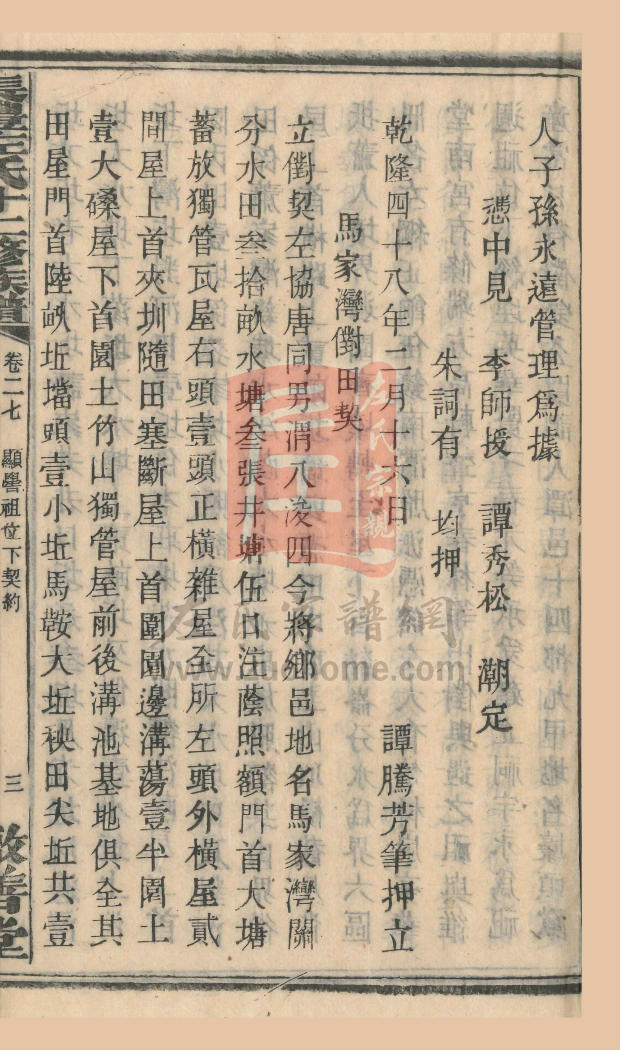 人子孫永遠管理為據
憑中見 李師援 譚秀松 潮定
朱詞有 均押
乾隆四十八年二月十六日 譚騰芳筆押立
馬家灣對田契
立對契左協唐同男渭八浚四今將鄉邑地名馬家灣關
分水田叁拾畝水塘叁張井塘伍口注蔭照額門首大塘
蓄放獨管瓦屋右頭壹頭正橫雜屋全所左頭外橫屋貳
間屋上首夾圳隨田塞斷屋上首園園邊溝蕩壹半園土
壹大磉屋下首園土竹山獨管屋前後溝池基地俱全其
田屋門首陸畝坵壋頭壹小坵馬鞍大坵秧田尖坵共壹
左氏十二修族譜 卷二七 顯譽祖位下契約 三 敦善堂
左氏宗親
左氏家譜網
www.zuohome.com